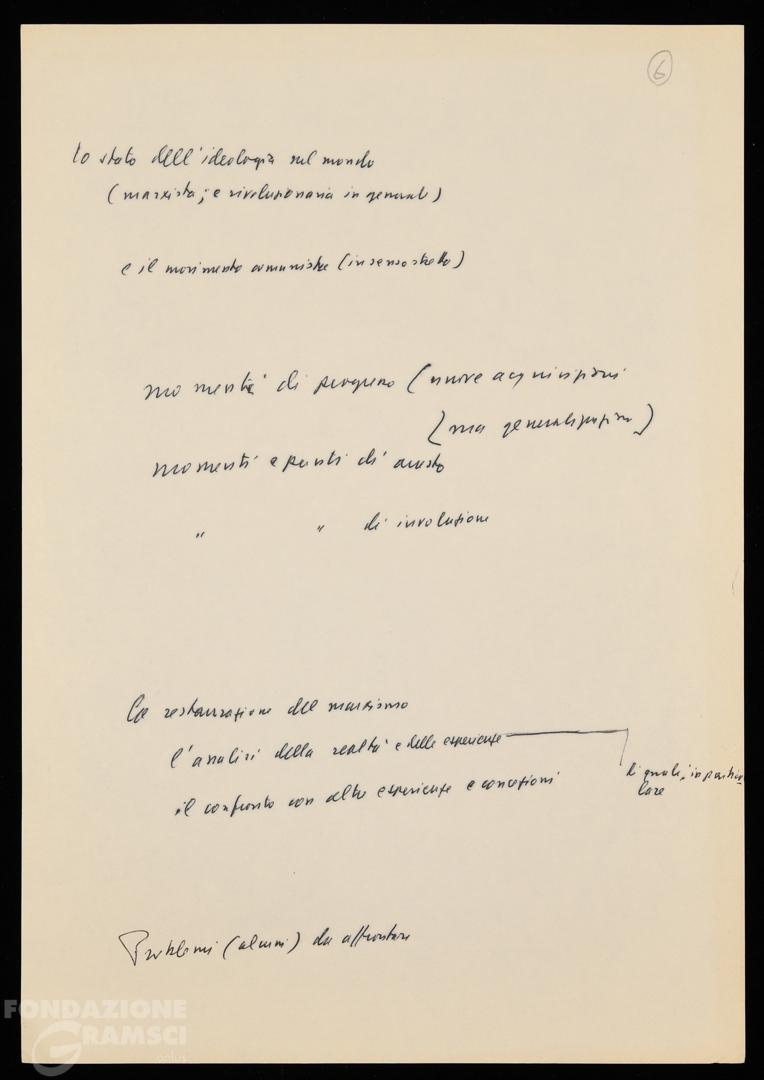 6
Lo stato dell'ideologia nel mondo
(marxista, e rivoluzionaria in generale)
e il movimento comunista (in senso stretto)
momenti di progresso (nuove acquisizioni
(ma generalizzazione)
momenti e punti di arresto
" " di involuzione
La restaurazione del marxismo
l'analisi della realtà e delle esperienze
di quali, in partico
lare
il confronto con altre esperienze e concezioni
Problemi (alcuni) da affrontare
FONDAZIONE
GRAMSCI
onlus